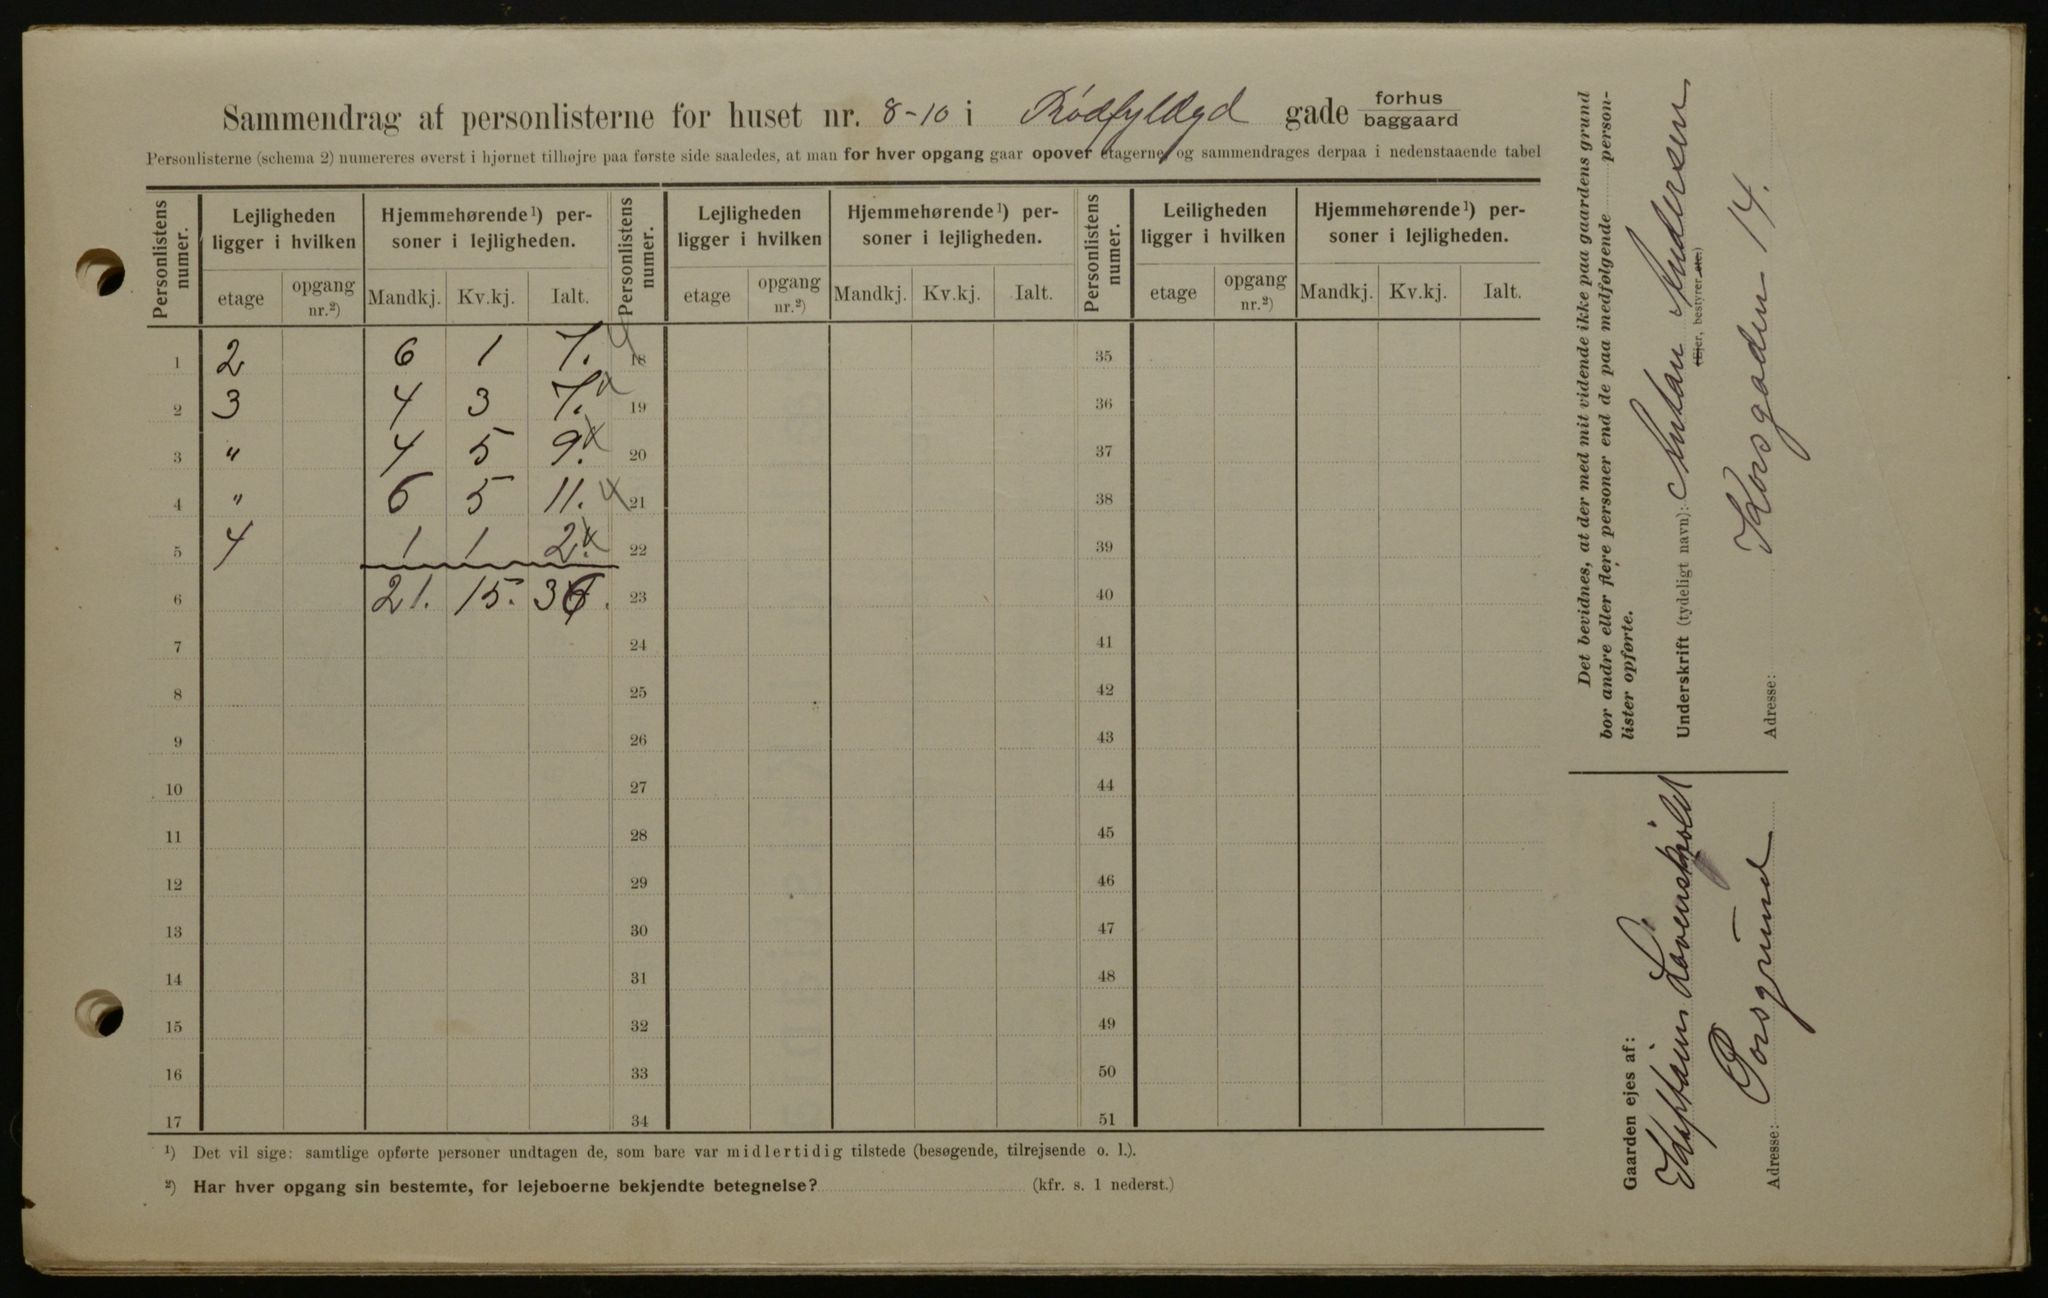 Sammendrag af personlisterne for huset nr. 8-10 i Rødfyldgd gade forhus baggaard
Personlisterne (schema 2) numereres øverst i hjørnet tilhøjre paa første side saaledes, at man for hver opgang gaar opover etagerne, og sammendrages derpaa i nedenstaaende tabel
Personlistens numer. Lejligheden ligger i hvilken Hjemmehørende¹) per- soner i lejligheden. Personlistens numer. Lejligheden ligger i hvilken Hjemmehørende¹) per- soner i lejligheden. Personlistens numer. Leiligheden ligger i hvilken Hjemmehørende¹) per- soner i lejligheden.
etage opgang nr.²) Mandkj. Kv.kj. Ialt. etage opgang nr.²) Mandkj. Kv.kj. Ialt. etage opgang nr.²) Mandkj. Kv.kj. Ialt.
1 2 6 1 7. 18 35
2 3 4 3 7. 19 36
3 " 4 5 9. 20 37
4 " 6 5 11. 21 38
5 4 1 1 2. 22 39
6 21. 15. 36. 23 40
7 24 41
8 25 42
9 26 43
10 27 44
11 28 45
12 29 46
13 30 47
14 31 48
15 32 49
16 33 50
17 34 51
¹) Det vil sige: samtlige opførte personer undtagen de, som bare var midlertidig tilstede (besøgende, tilrejsende o. l.).
²) Har hver opgang sin bestemte, for lejeboerne bekjendte betegnelse? (kfr. s. 1 nederst.)
Det bevidnes, at der med mit vidende ikke paa gaardens grund
bor andre eller flere personer end de paa medfølgende person-
lister opførte.
Underskrift (tydeligt navn): Anton Andersen
(Ejer, bestyrer etc.)
Adresse: Korsgaden 14.
Gaarden ejes af:
Kaptain Løvenskiold
Adresse: Porsgrund